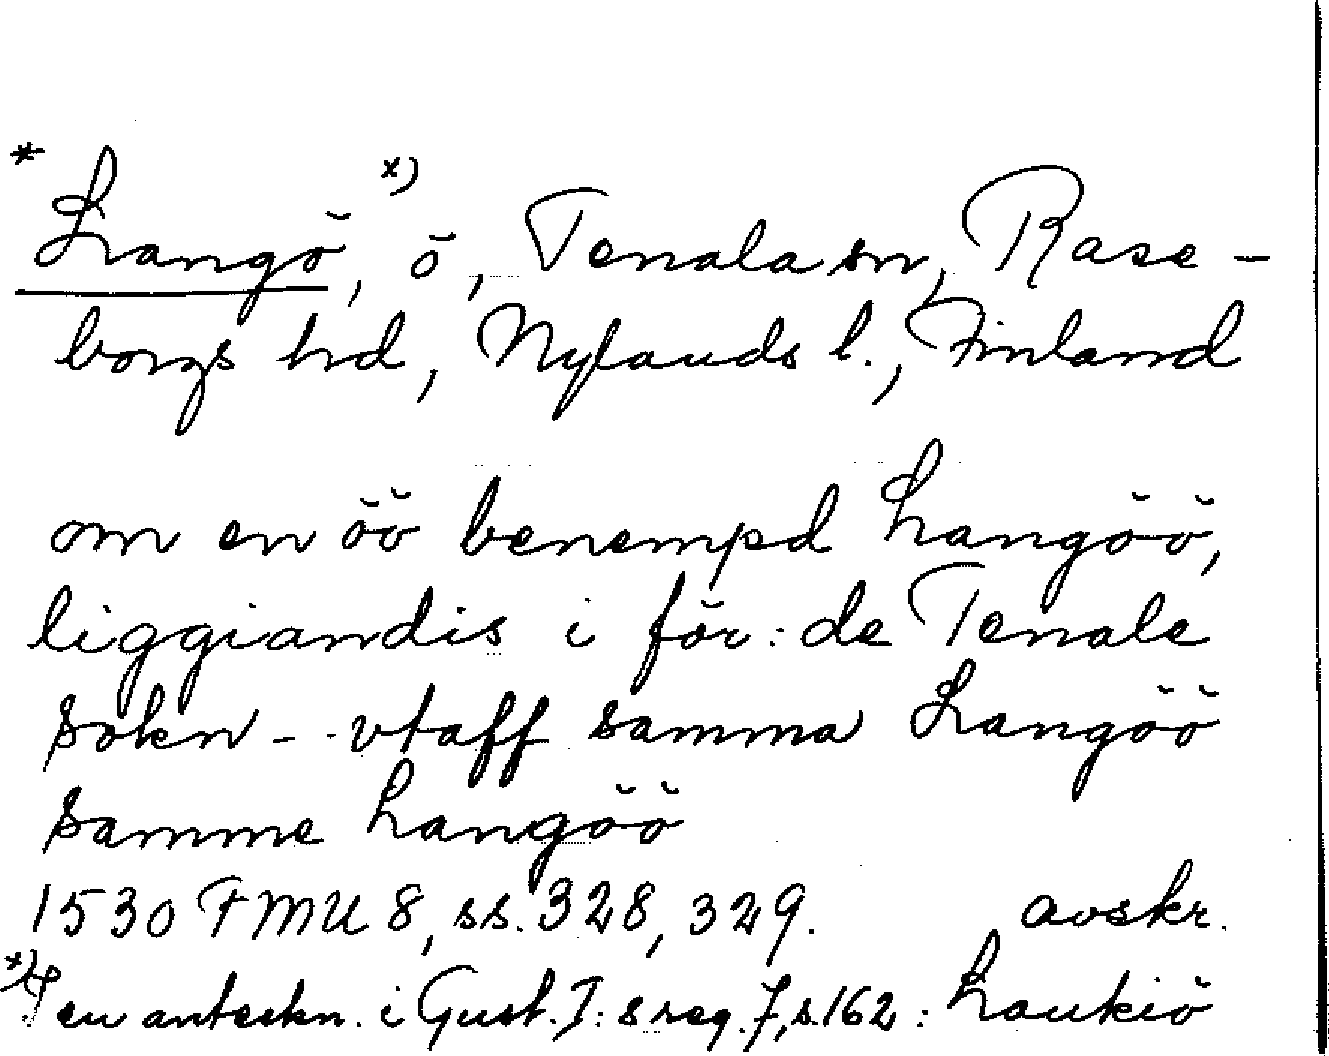 * Langö x), ö, Tenala sn, Rase-
borgs hd, Nylands l., Finland
om en öö benempd Langöö,
liggiandis i för:de Tenale
sokn -- vtaff samma Langöö
samme Langöö
1530 FMU 8, ss. 328, 329. avskr.
x) I en anteckn. i Gust. I:s reg. 7, s. 162: Laukiö